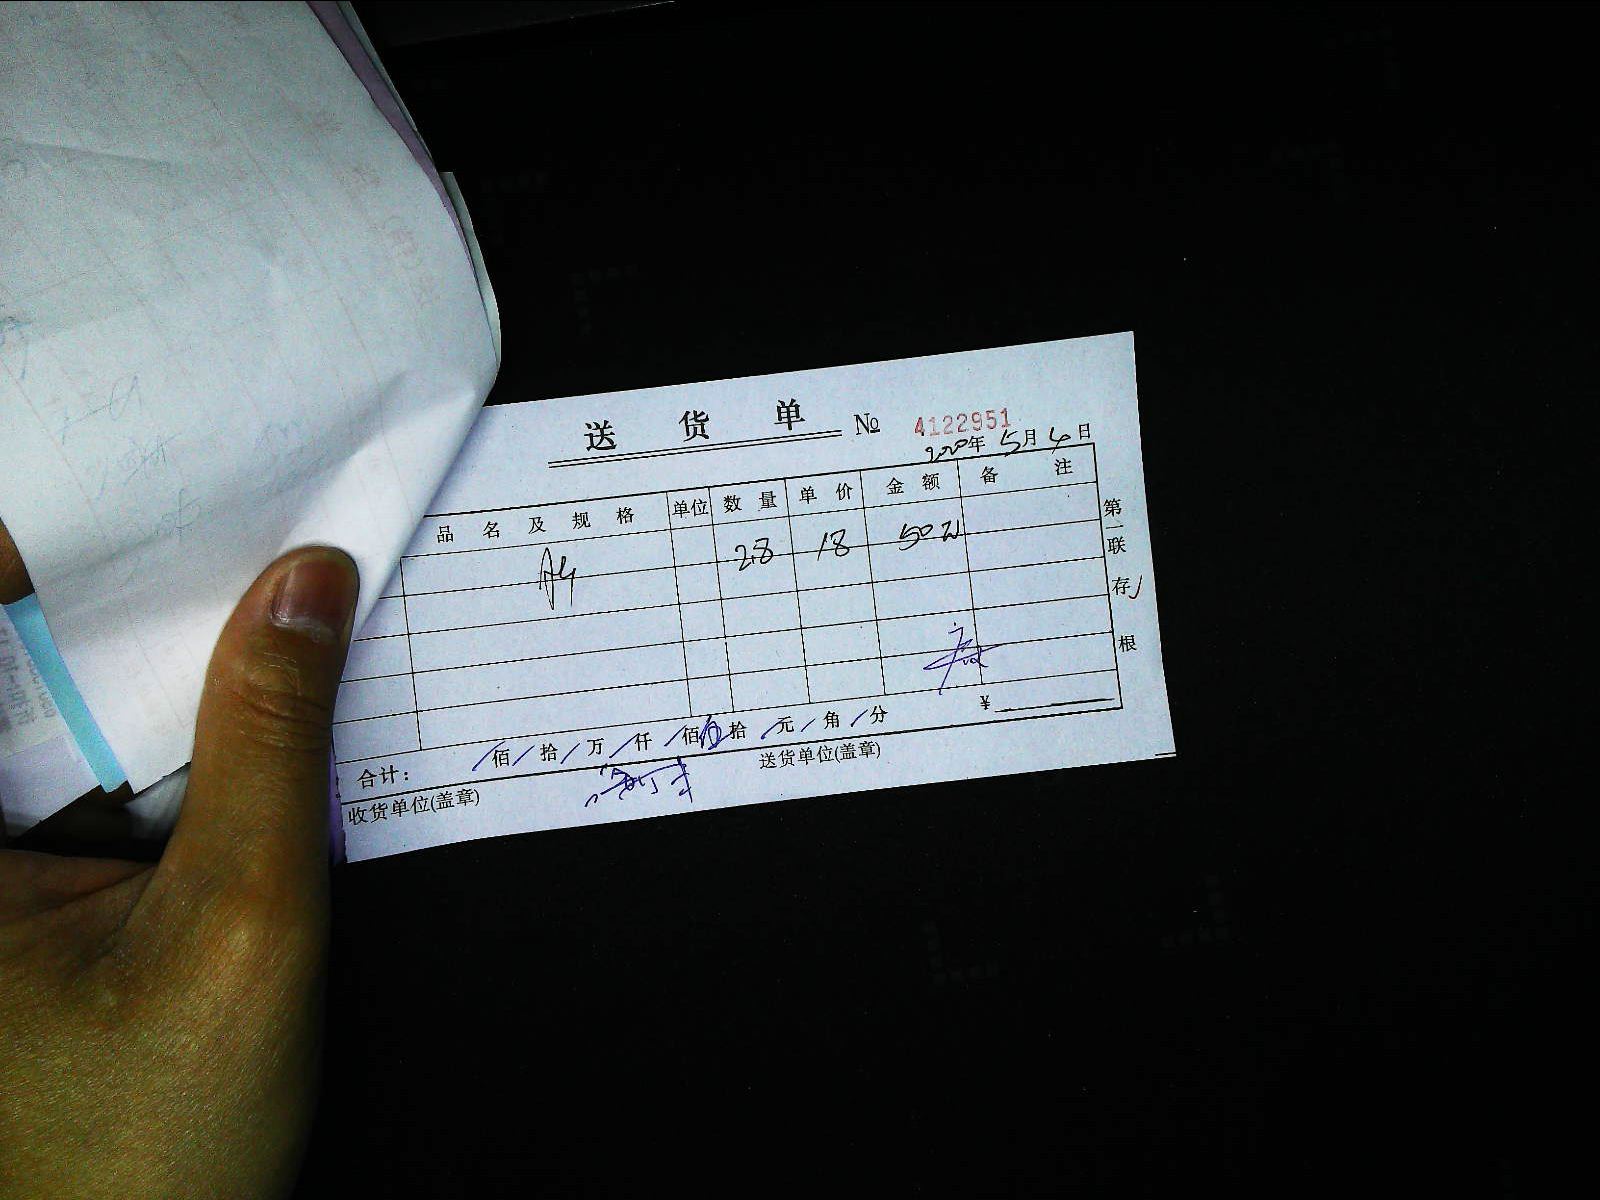 送 货 单 № 4122951
2020年 5月 6日
品 名 及 规 格 单位 数 量 单 价 金 额 备 注
2.8 18 50元
第一联 存根
合计: 佰 拾 万 仟 佰 伍拾 元 角 分 ¥
收货单位(盖章) 送货单位(盖章)